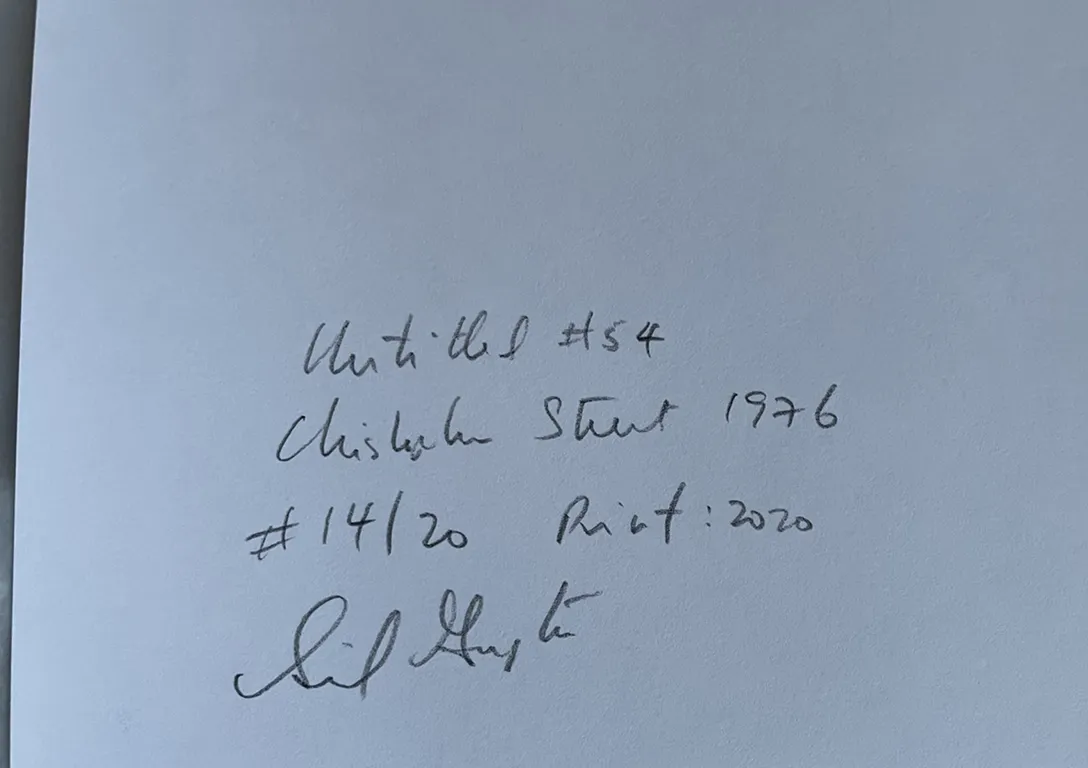 Untitled #54
Christopher Street 1976
#14/20 Print: 2020
Sunil Gupta